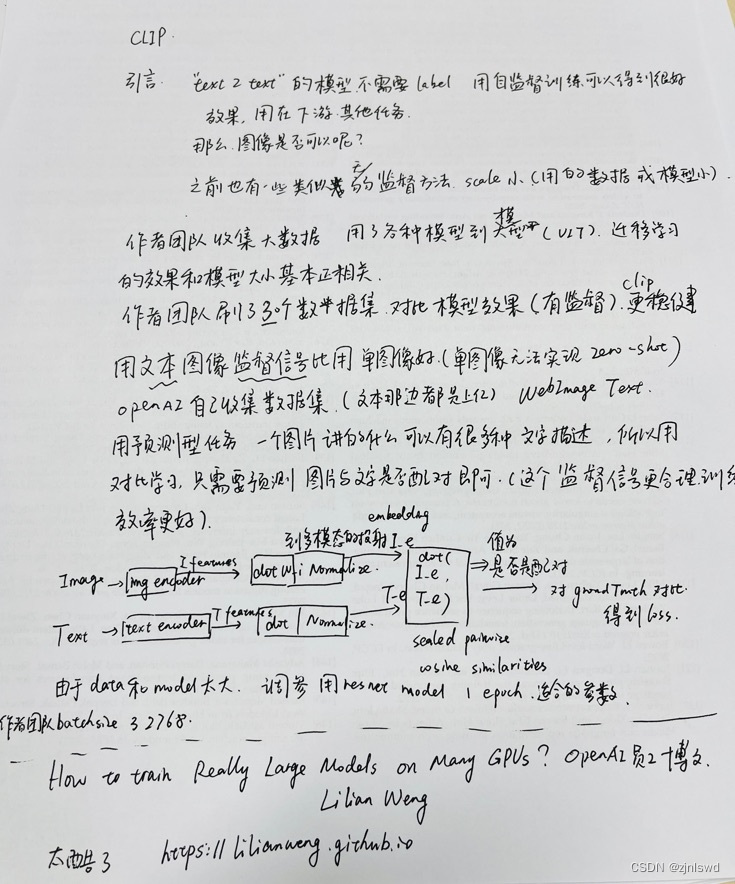 CLIP.
引言. "text 2 text" 的模型不需要 label 用自监督训练可以得到很好
效果, 用在下游其他任务.
那么, 图像是否可以呢?
之前也有一些类似 无/弱监督方法. scale 小 (用的数据或模型小).
作者团队收集大数据 用了各种模型到大模型 (ViT). 迁移学习
的效果和模型大小基本正相关.
作者团队刷了30个数据集. 对比模型效果 (有监督). clip 更稳健
用文本图像监督信号比用单图像好. (单图像无法实现 zero-shot)
openAI 自己收集数据集. (文本那边都是上亿) WebImage Text.
用预测型任务 一个图片讲的什么可以有很多种文字描述, 所以用
对比学习, 只需要预测 图片与文字是否配对即可. (这个监督信号更合理, 训练
效率更好).
到多模态的投射 embedding I-e
Image → img encoder I features → dot Wi Normalize. → dot( I-e, T-e) ⇒ 值为是否是配对 → 对 ground Truth 对比. 得到 loss.
Text → text encoder T features → dot Normalize. → T-e
scaled pairwise
cosine similarities
由于 data 和 model 太大. 调参用 resnet model 1 epoch. 适合的参数.
作者团队 batchsize 32768.
How to train Really Large Models on Many GPUs? OpenAI 员工博文.
Lilian Weng
太酷了 https://lilianweng.github.io
CSDN @zjnlswd